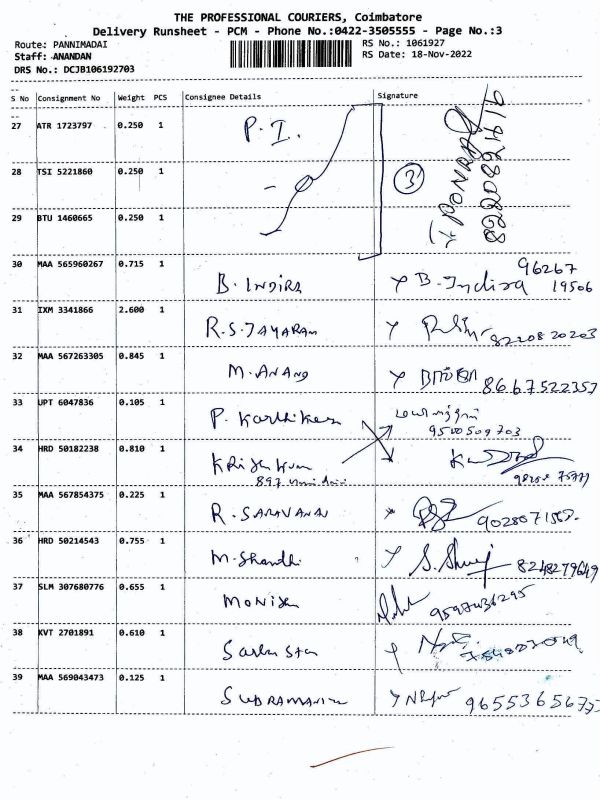 THE PROFESSIONAL COURIERS, Coimbatore
Delivery Runsheet - PCM - Phone No.:0422-3505555 - Page No.:3
Route: PANNIMADAI RS No.: 1061927
Staff: ANANDAN RS Date: 18-Nov-2022
DRS No.: DCJB106192703
S No Consignment No Weight PCS Consignee Details Signature
27 ATR 1723797 0.250 1 P. I.
28 TSI 5221860 0.250 1 3
29 BTU 1460665 0.250 1
30 MAA 565960267 0.715 1 B. INDIRA B. Indira 96267 19506
31 IXM 3341866 2.600 1 R.S. JAYARAM 8220820203
32 MAA 567263305 0.845 1 M. ANAND 8667522357
33 UPT 6047836 0.105 1 P. Karthikes 9500509703
34 HRD 50182238 0.810 1
35 MAA 567854375 0.225 1 R. SARAVANAN
36 HRD 50214543 0.755 1 M. Shandhi 8248279649
37 SLM 307680776 0.655 1 9597436295
38 KVT 2701891 0.610 1
39 MAA 569043473 0.125 1 SUBRAMANIAN